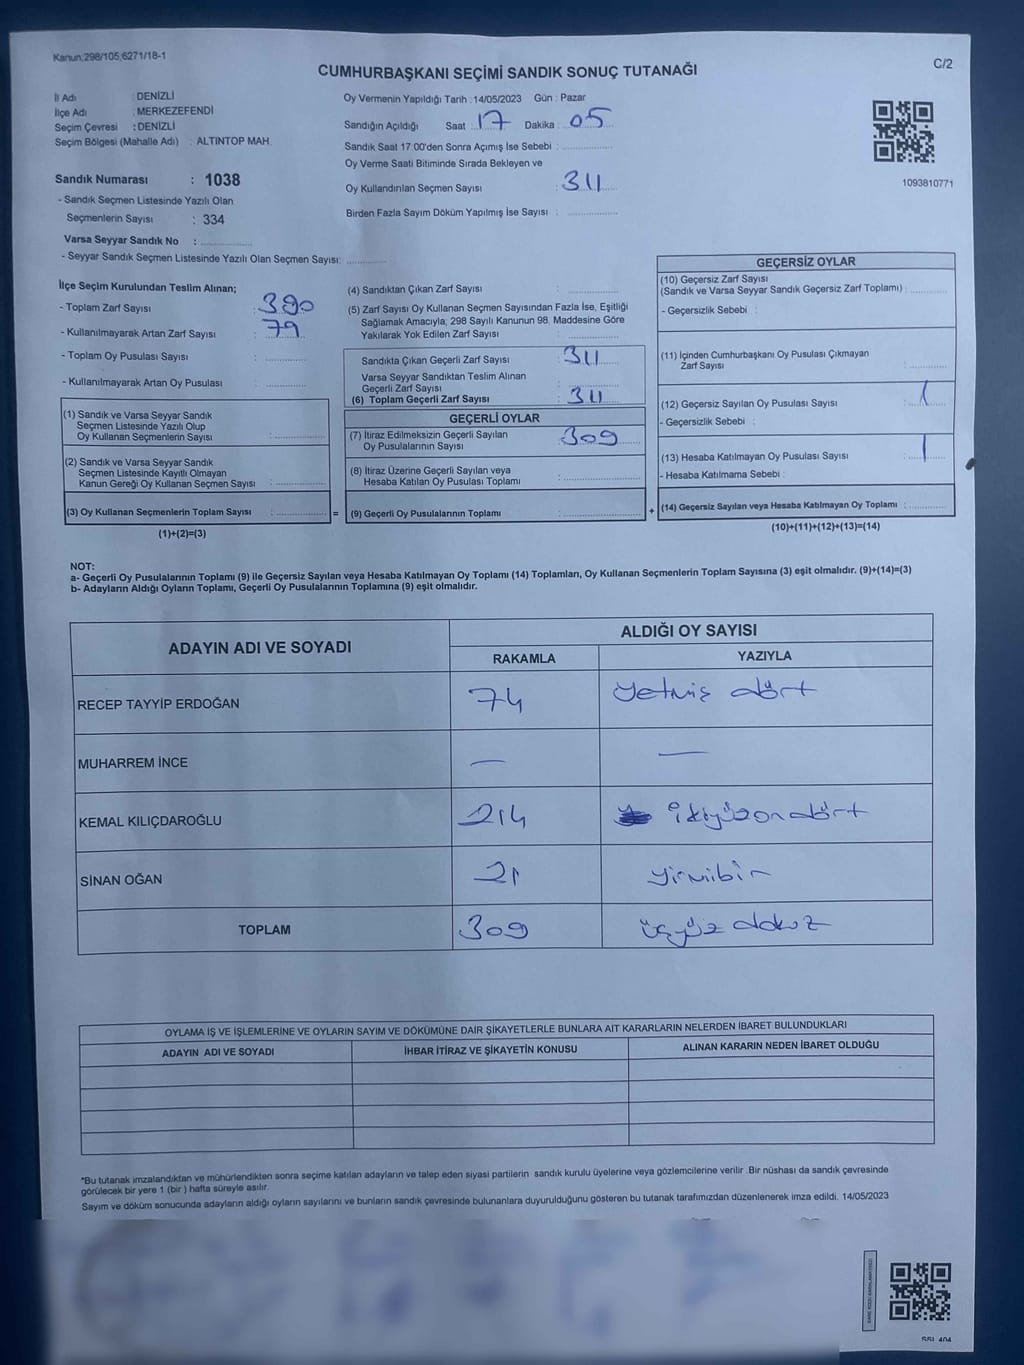 Kanun:298/105;6271/18-1
C/2
CUMHURBAŞKANI SEÇİMİ SANDIK SONUÇ TUTANAĞI
İl Adı : DENİZLİ
İlçe Adı : MERKEZEFENDİ
Seçim Çevresi : DENİZLİ
Seçim Bölgesi (Mahalle Adı) : ALTINTOP MAH.
Sandık Numarası : 1038
- Sandık Seçmen Listesinde Yazılı Olan
Seçmenlerin Sayısı : 334
Varsa Seyyar Sandık No :
- Seyyar Sandık Seçmen Listesinde Yazılı Olan Seçmen Sayısı:
Oy Vermenin Yapıldığı Tarih : 14/05/2023 Gün : Pazar
Sandığın Açıldığı Saat : 17 Dakika : 05
Sandık Saat 17.00'den Sonra Açımış İse Sebebi :
Oy Verme Saati Bitiminde Sırada Bekleyen ve
Oy Kullandırılan Seçmen Sayısı : 311
Birden Fazla Sayım Döküm Yapılmış İse Sayısı :
1093810771
İlçe Seçim Kurulundan Teslim Alınan;
- Toplam Zarf Sayısı : 390
- Kullanılmayarak Artan Zarf Sayısı : 79
- Toplam Oy Pusulası Sayısı :
- Kullanılmayarak Artan Oy Pusulası :
(1) Sandık ve Varsa Seyyar Sandık
Seçmen Listesinde Yazılı Olup
Oy Kullanan Seçmenlerin Sayısı :
(2) Sandık ve Varsa Seyyar Sandık
Seçmen Listesinde Kayıtlı Olmayan
Kanun Gereği Oy Kullanan Seçmen Sayısı :
(3) Oy Kullanan Seçmenlerin Toplam Sayısı :
(1)+(2)=(3)
=
(4) Sandıktan Çıkan Zarf Sayısı :
(5) Zarf Sayısı Oy Kullanan Seçmen Sayısından Fazla İse, Eşitliği
Sağlamak Amacıyla; 298 Sayılı Kanunun 98. Maddesine Göre
Yakılarak Yok Edilen Zarf Sayısı :
Sandıkta Çıkan Geçerli Zarf Sayısı : 311
Varsa Seyyar Sandıktan Teslim Alınan
Geçerli Zarf Sayısı :
(6) Toplam Geçerli Zarf Sayısı : 311
GEÇERLİ OYLAR
(7) İtiraz Edilmeksizin Geçerli Sayılan
Oy Pusulalarının Sayısı : 309
(8) İtiraz Üzerine Geçerli Sayılan veya
Hesaba Katılan Oy Pusulası Toplamı :
(9) Geçerli Oy Pusulalarının Toplamı :
+
GEÇERSİZ OYLAR
(10) Geçersiz Zarf Sayısı
(Sandık ve Varsa Seyyar Sandık Geçersiz Zarf Toplamı) :
- Geçersizlik Sebebi :
(11) İçinden Cumhurbaşkanı Oy Pusulası Çıkmayan
Zarf Sayısı :
(12) Geçersiz Sayılan Oy Pusulası Sayısı : 1
- Geçersizlik Sebebi :
(13) Hesaba Katılmayan Oy Pusulası Sayısı : 1
- Hesaba Katılmama Sebebi :
(14) Geçersiz Sayılan veya Hesaba Katılmayan Oy Toplamı :
(10)+(11)+(12)+(13)=(14)
NOT:
a- Geçerli Oy Pusulalarının Toplamı (9) ile Geçersiz Sayılan veya Hesaba Katılmayan Oy Toplamı (14) Toplamları, Oy Kullanan Seçmenlerin Toplam Sayısına (3) eşit olmalıdır. (9)+(14)=(3)
b- Adayların Aldığı Oyların Toplamı, Geçerli Oy Pusulalarının Toplamına (9) eşit olmalıdır.
ADAYIN ADI VE SOYADI
ALDIĞI OY SAYISI
RAKAMLA YAZIYLA
RECEP TAYYİP ERDOĞAN 74 yetmiş dört
MUHARREM İNCE — —
KEMAL KILIÇDAROĞLU 214 ikiyüzondört
SİNAN OĞAN 21 yirmibir
TOPLAM 309 üçyüz dokuz
OYLAMA İŞ VE İŞLEMLERİNE VE OYLARIN SAYIM VE DÖKÜMÜNE DAİR ŞİKAYETLERLE BUNLARA AİT KARARLARIN NELERDEN İBARET BULUNDUKLARI
ADAYIN ADI VE SOYADI İHBAR İTİRAZ VE ŞİKAYETİN KONUSU ALINAN KARARIN NEDEN İBARET OLDUĞU
*Bu tutanak imzalandıktan ve mühürlendikten sonra seçime katılan adayların ve talep eden siyasi partilerin sandık kurulu üyelerine veya gözlemcilerine verilir. Bir nüshası da sandık çevresinde
görülecek bir yere 1 (bir) hafta süreyle asılır.
Sayım ve döküm sonucunda adayların aldığı oyların sayılarını ve bunların sandık çevresinde bulunanlara duyurulduğunu gösteren bu tutanak tarafımızdan düzenlenerek imza edildi. 14/05/2023